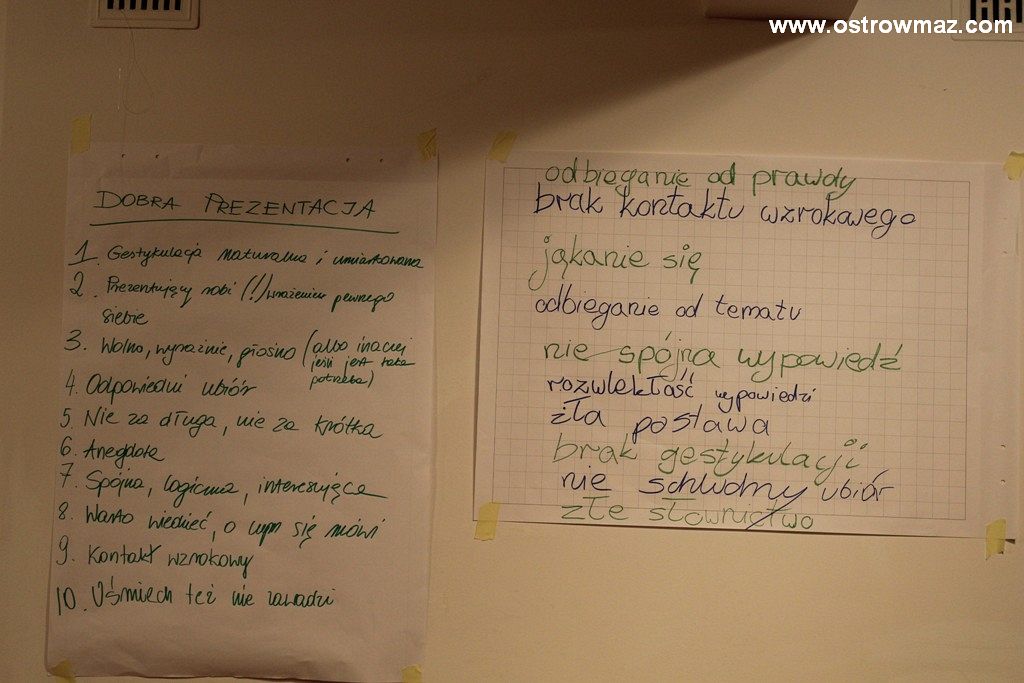 www.ostrowmaz.com
DOBRA PREZENTACJA
1. Gestykulacja naturalna i umiarkowana
2. Prezentujący robi (!) wrażenie pewnego
siebie
3. Wolno, wyraźnie, głośno (albo inaczej
jeśli jest taka
potrzeba)
4. Odpowiedni ubiór
5. Nie za długa, nie za krótka
6. Anegdota
7. Spójna, logiczna, interesująca
8. Warto wiedzieć, o czym się mówi
9. Kontakt wzrokowy
10. Uśmiech też nie zawadzi
odbieganie od prawdy
brak kontaktu wzrokowego
jąkanie się
odbieganie od tematu
nie spójna wypowiedź
rozwlekłość wypowiedzi
zła postawa
brak gestykulacji
nie schludny ubiór
złe słownictwo